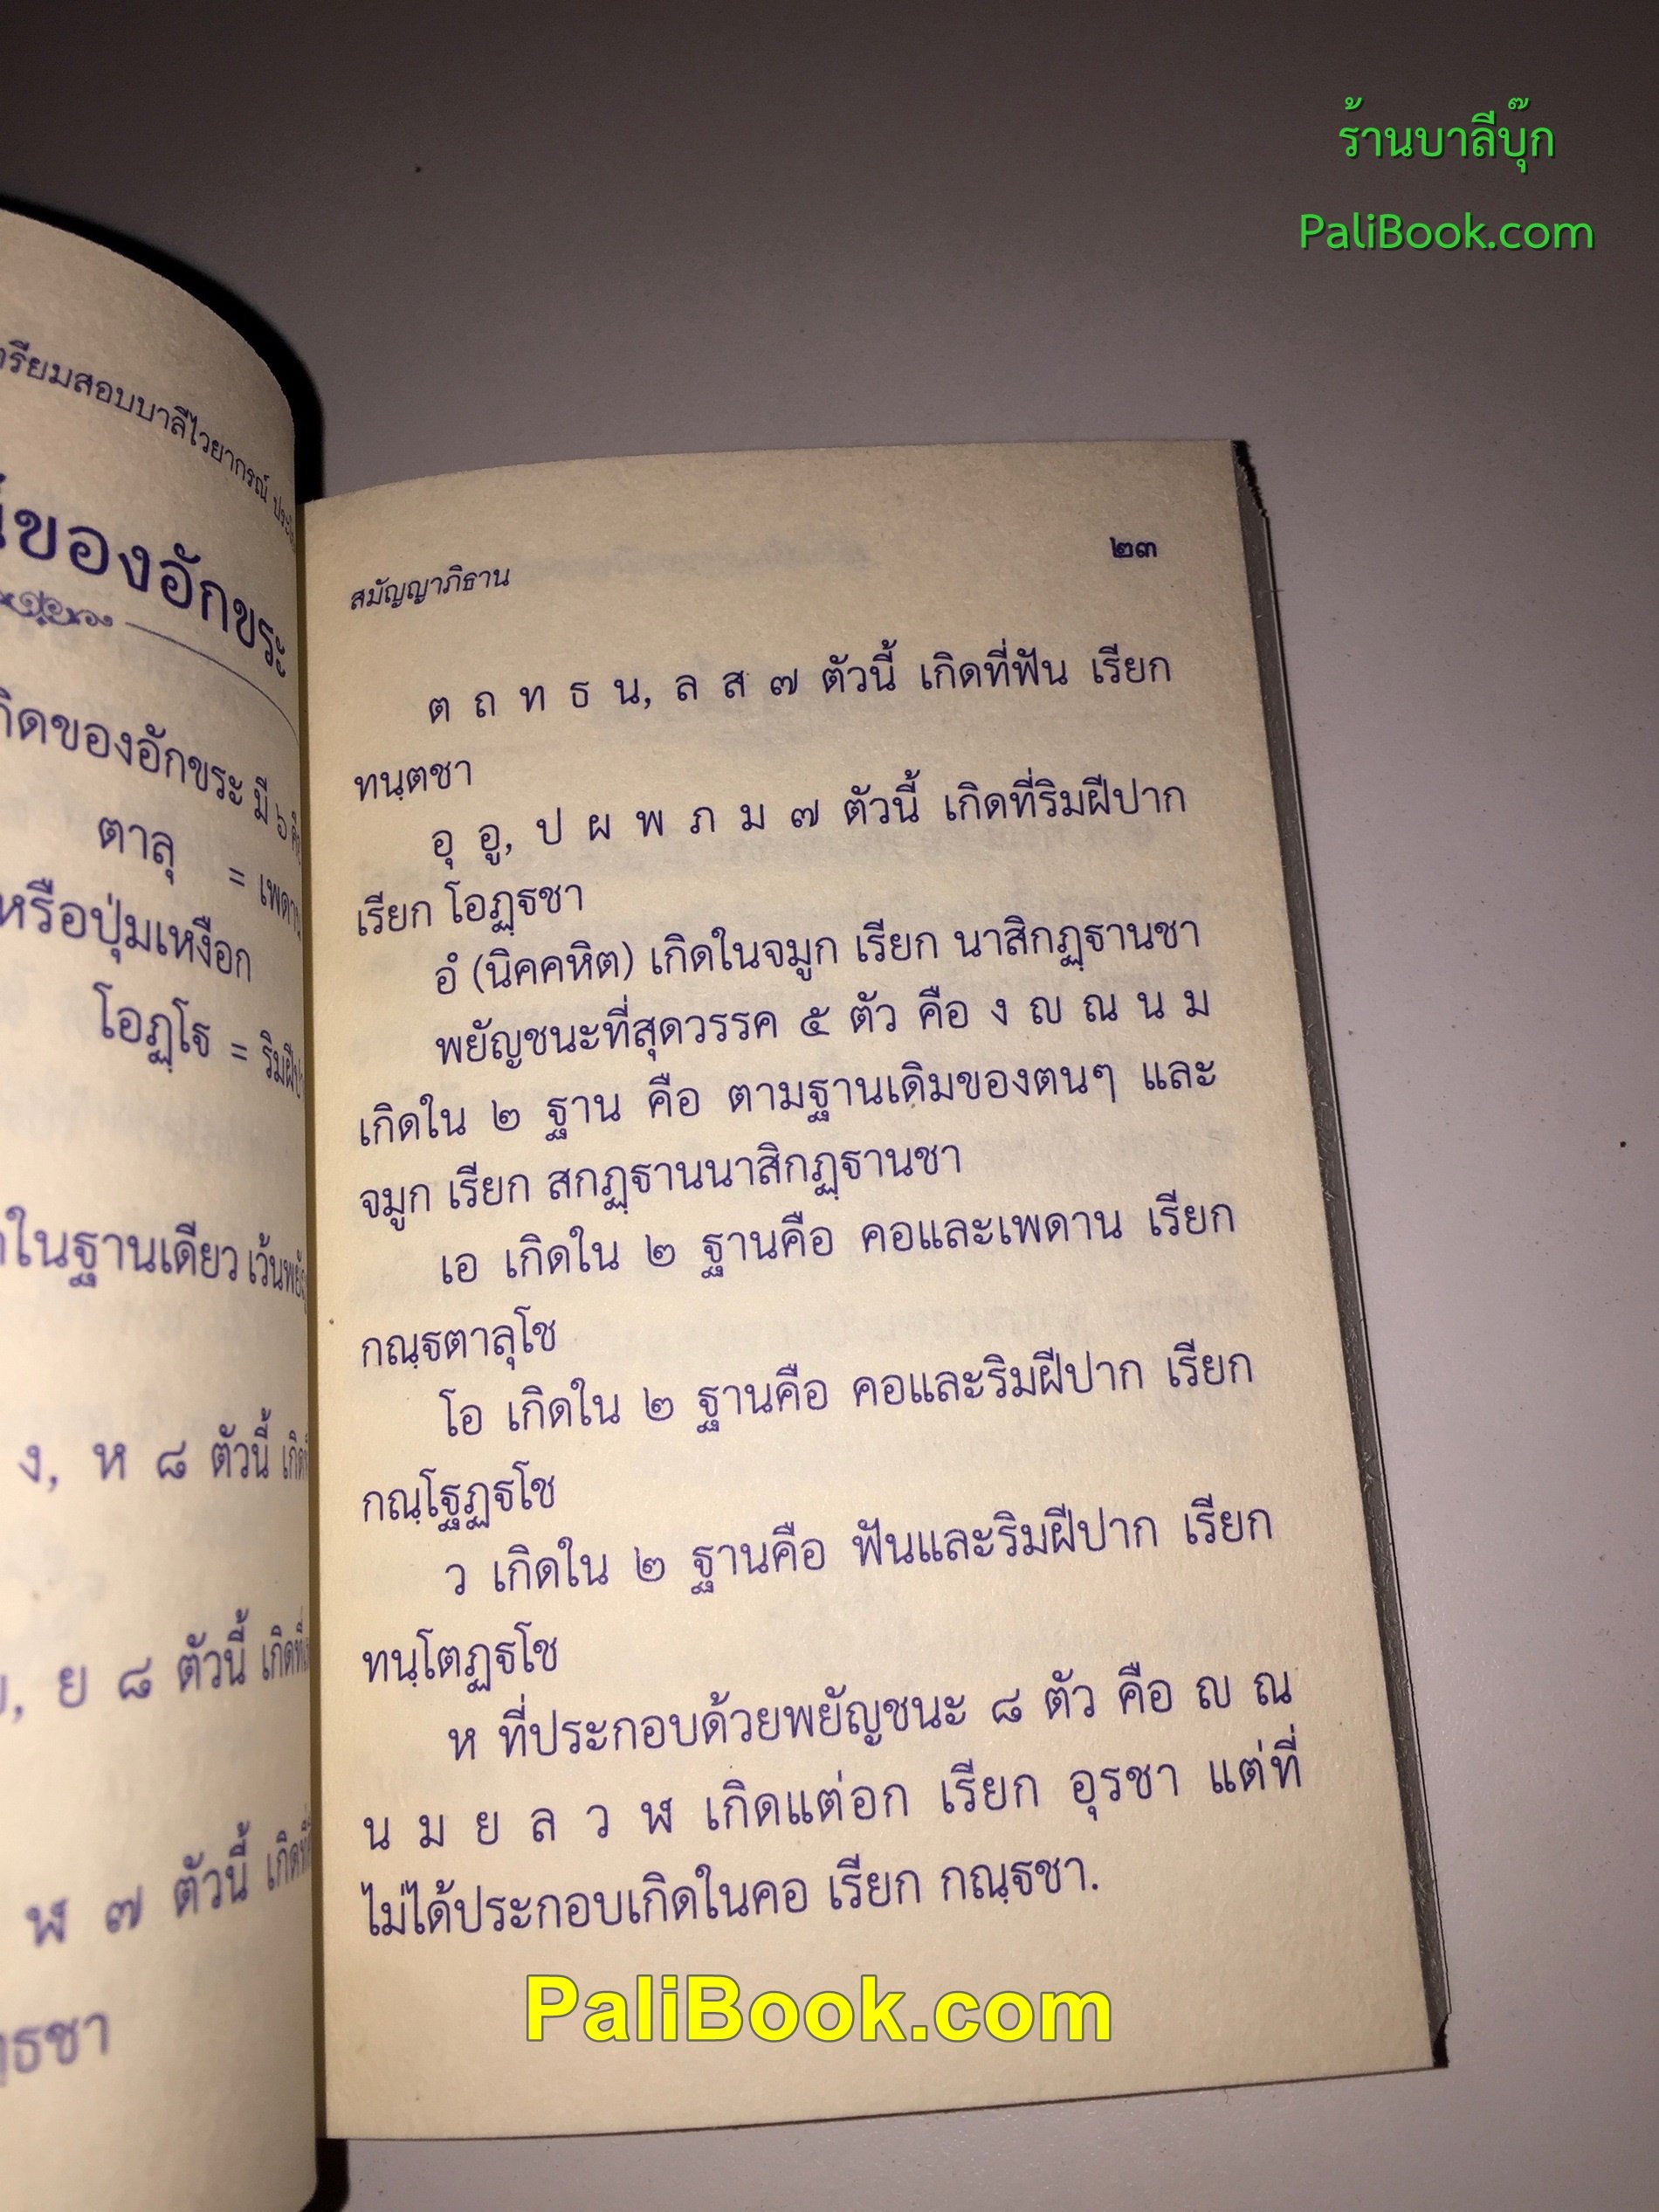 ร้านบาลีบุ๊ก
PaliBook.com
ของอักขระ
ของอักขระ มี ๖
ตาลุ
=
หรือปุ่มเหงือก
โอฏฺโฐ =
ในฐานเดียว เว้น
ง, ห ๘ ตัวนี้
ย ๘ ตัวนี้
ฬ ๗ ตัวนี้
สมัญญาภิธาน
๒๓
ต ถ ท ธ น, ล ส ๗ ตัวนี้ เกิดที่ฟัน เรียก
ทนฺตชา
อุ อู, ป ผ พ ภ ม ๗ ตัวนี้ เกิดที่ริมฝีปาก
เรียก โอฏฺฐชา
อํ (นิคคหิต) เกิดในจมูก เรียก นาสิกฏฺฐานชา
พยัญชนะที่สุดวรรค ๕ ตัว คือ ง ญ ณ น ม
เกิดใน ๒ ฐาน คือ ตามฐานเดิมของตนๆ และ
จมูก เรียก สกฏฺฐานนาสิกฏฺฐานชา
เอ เกิดใน ๒ ฐานคือ คอและเพดาน เรียก
กณฺฐตาลุโช
โอ เกิดใน ๒ ฐานคือ คอและริมฝีปาก เรียก
กณฺโฐฏฺฐโช
ว เกิดใน ๒ ฐานคือ ฟันและริมฝีปาก เรียก
ทนฺโตฏฺฐโช
ห ที่ประกอบด้วยพยัญชนะ ๘ ตัว คือ ญ ณ
น ม ย ล ว ฬ เกิดแต่อก เรียก อุรชา แต่ที่
ไม่ได้ประกอบเกิดในคอ เรียก กณฺฐชา.
PaliBook.com